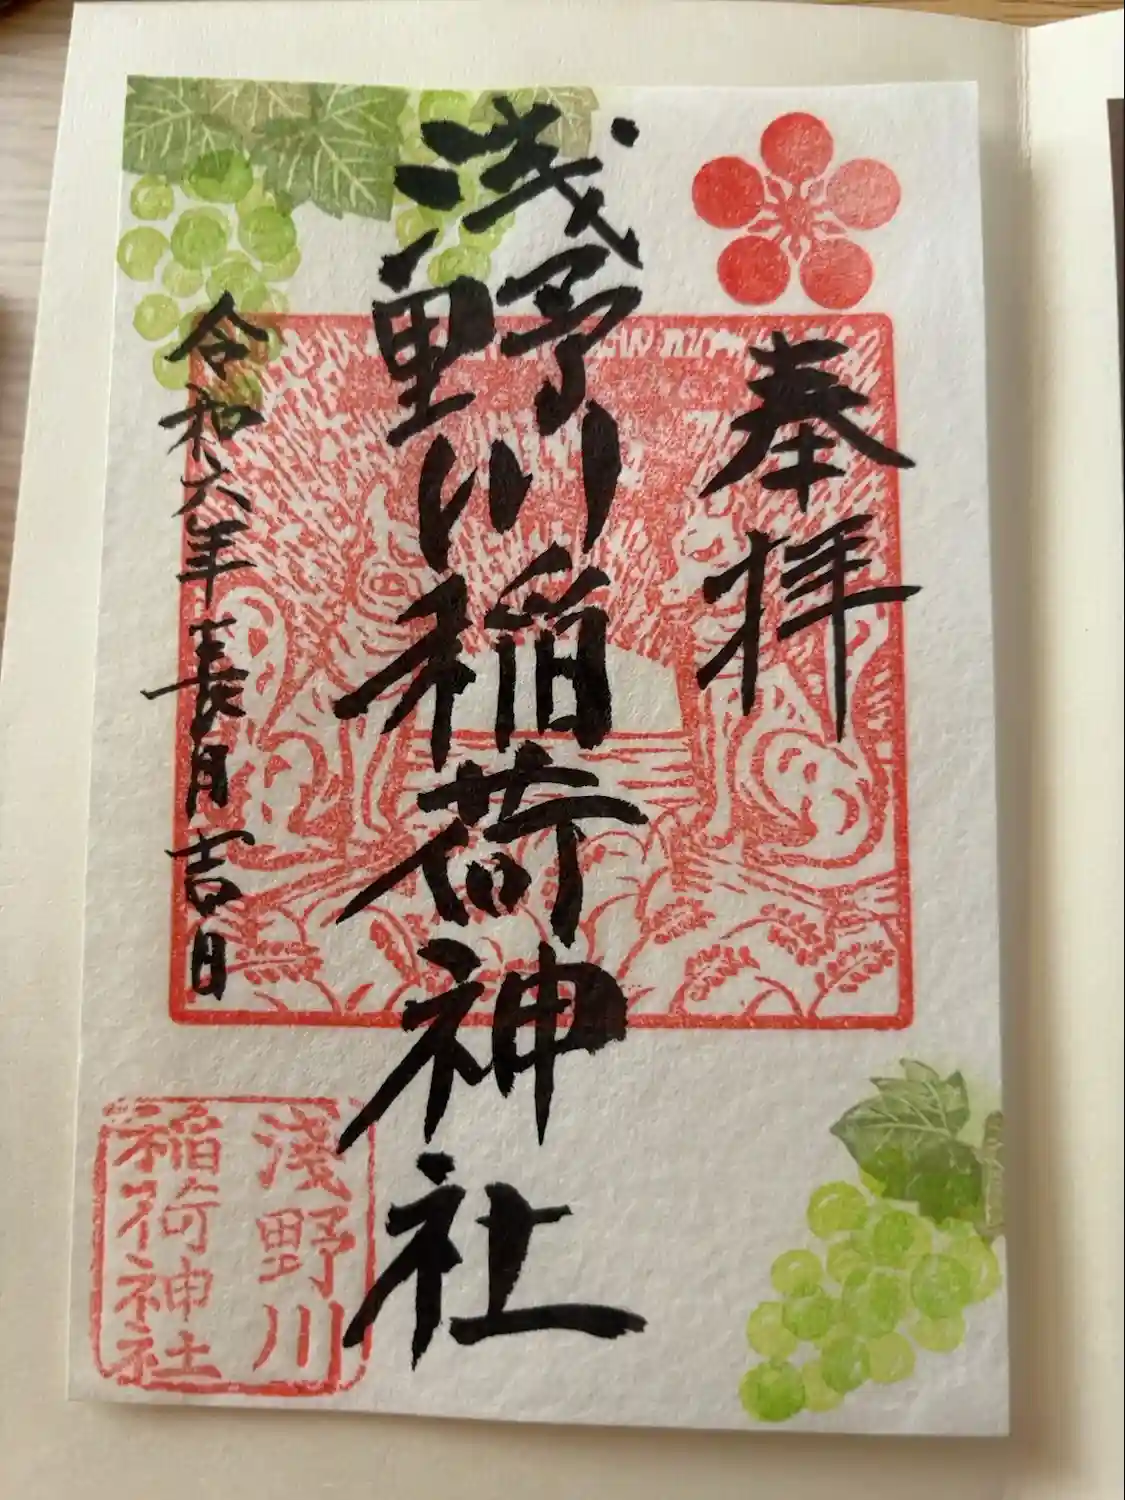 奉拝
浅野川稲荷神社
令和六年長月吉日
淺野川
稲荷神社